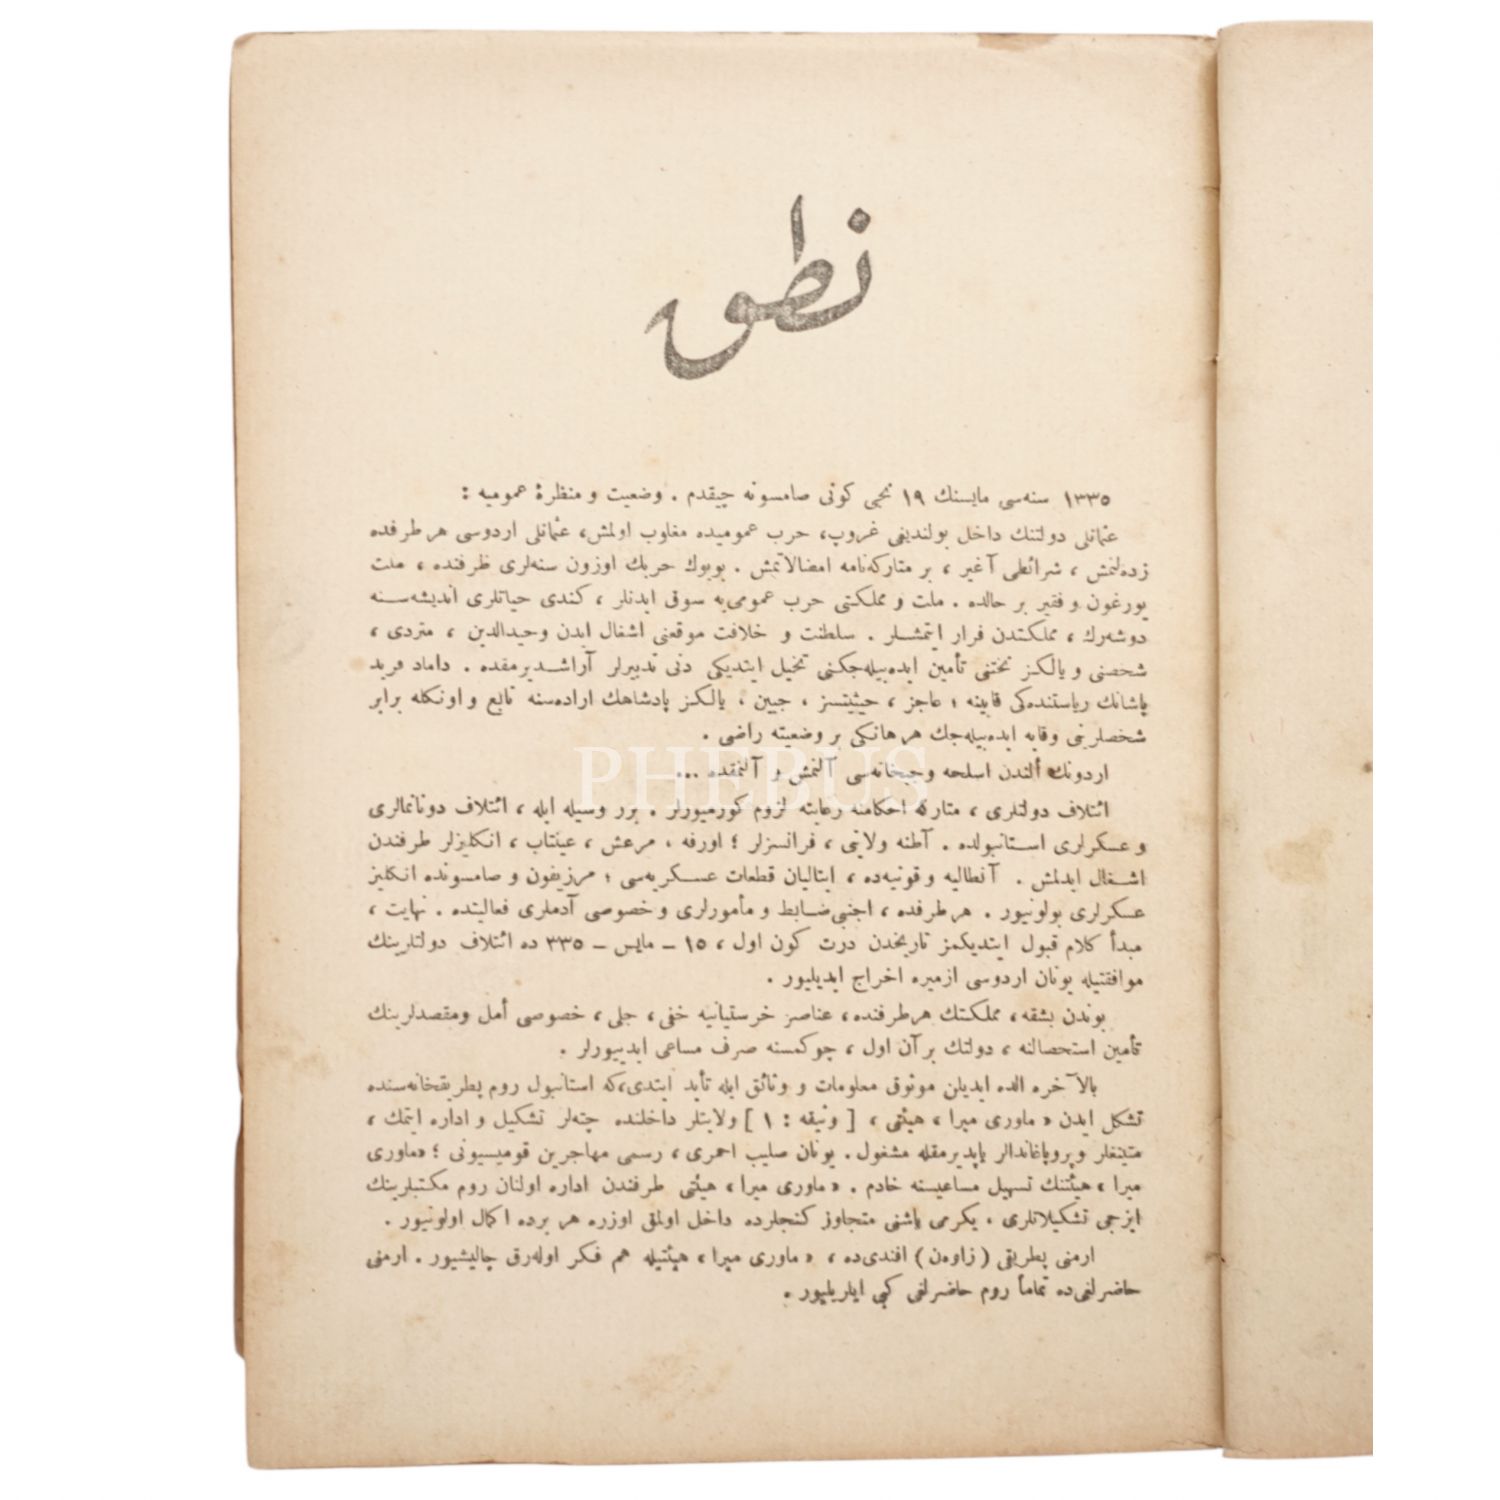 نطق
١٣٣٥ سنه‌سی مايسنك ١٩ نجی كونی صامسونه چيقدم . وضعيت و منظرۀ عموميه :
عثمانلی دولتنك داخل بولنديغی غروپ، حرب عموميده مغلوب اولمش، عثمانلی اردوسی هر طرفده
زده‌لنمش ، شرائطی آغير ، بر متاركه‌نامه امضالانمش . بويوك حربك اوزون سنه‌لری ظرفنده ، ملت
يورغون و فقير بر حالده . ملت و مملكتی حرب عمومی‌يه سوق ايدنلر ، كندی حياتلری انديشه‌سنه
دوشه‌رك ، مملكتدن فرار ايتمشلر . سلطنت و خلافت موقعنی اشغال ايدن وحيدالدين ، متردی ،
شخصنی و يالكز تختنی تأمين ايده‌بيله‌جكنی تخيل ايتديكی دنی تدبيرلر آراشديرمقده . داماد فريد
پاشانك رياستنده‌كی قابينه ؛ عاجز ، حيثيتسز ، جبين ، يالكز پادشاهك اراده‌سنه تابع و اونكله برابر
شخصلرينی وقايه ايده‌بيله‌جك هر هانكی بر وضعيته راضی .
اردونك ألندن اسلحه وجبخانه‌سی آلنمش و آلنمقده ...
PHEBUS
ائتلاف دولتلری ، متاركه احكامنه رعايته لزوم كورميورلر . برر وسيله ايله ، ائتلاف دونانمالری
و عسكرلری استانبولده . آطنه ولايتی ، فرانسزلر ؛ اورفه ، مرعش ، عينتاب ، انكليزلر طرفندن
اشغال ايدلمش . آنطاليه و قونيه‌ده ، ايتاليان قطعات عسكريه‌سی ؛ مرزيفون و صامسونده انكليز
عسكرلری بولونيور . هر طرفده ، اجنبی ضابط و مأمورلری و خصوصی آدملری فعاليتده . نهايت ،
مبدأ كلام قبول ايتديكمز تاريخدن درت كون اول ، ١٥ – مايس – ٣٣٥ ده ائتلاف دولتلرينك
موافقتيله يونان اردوسی ازميره اخراج ايديليور .
بوندن بشقه ، مملكتك هر طرفنده ، عناصر خرستيانيه خفی ، جلی ، خصوصی أمل ومقصدلرينك
تأمين استحصالنه ، دولتك بر آن اول ، چوكمسنه صرف مساعی ايدييورلر .
بالآخره الده ايديلن موثوق معلومات و وثائق ايله تأيد ايتدی‌كه استانبول روم پطريقخانه‌سنده
تشكل ايدن « ماوری ميرا ، هيئتی ، [ وثيقه : ١ ] ولايتلر داخلنده چته‌لر تشكيل و اداره ايتمك ،
متينغلر وپروپاغاندالر ياپديرمقله مشغول . يونان صليب احمری ، رسمی مهاجرين قوميسيونی ؛ «ماوری
ميرا ، هيئتنك تسهيل مساعيسنه خادم . « ماوری ميرا ، هيئتی طرفندن اداره اولنان روم مكتبلرينك
ايزجی تشكيلاتلری ، يكرمی ياشنی متجاوز كنجلرده داخل اولمق اوزره هر يرده اكمال اولونيور .
ارمنی پطريقی (زاوه‌ن) افندی‌ده ، « ماوری ميرا ، هيئتيله هم فكر اوله‌رق چاليشيور . ارمنی
حاضرلغی‌ده تماماً روم حاضرلغی كبی ايلريليور .